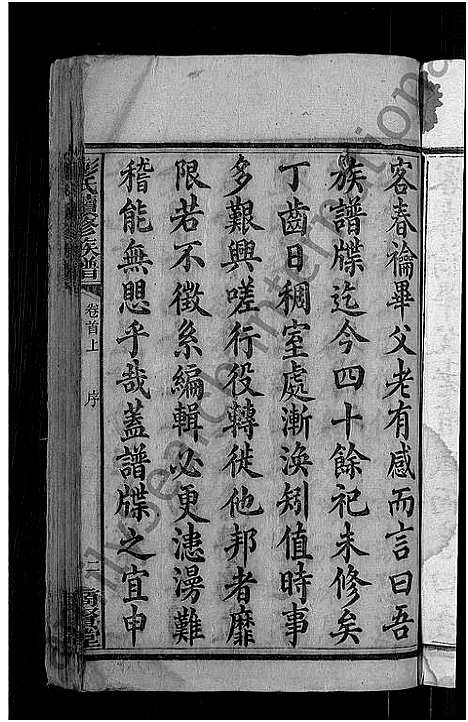 客春禴畢父老有感而言曰吾
族譜牒迄今四十餘祀未修矣
丁齒日稠室處漸渙矧值時事
多艱興嗟行役轉徙他邦者靡
限若不徵系編輯必更漶漫難
稽能無恖乎哉蓋譜牒之宜申
彭氏續修族譜
卷首上
序